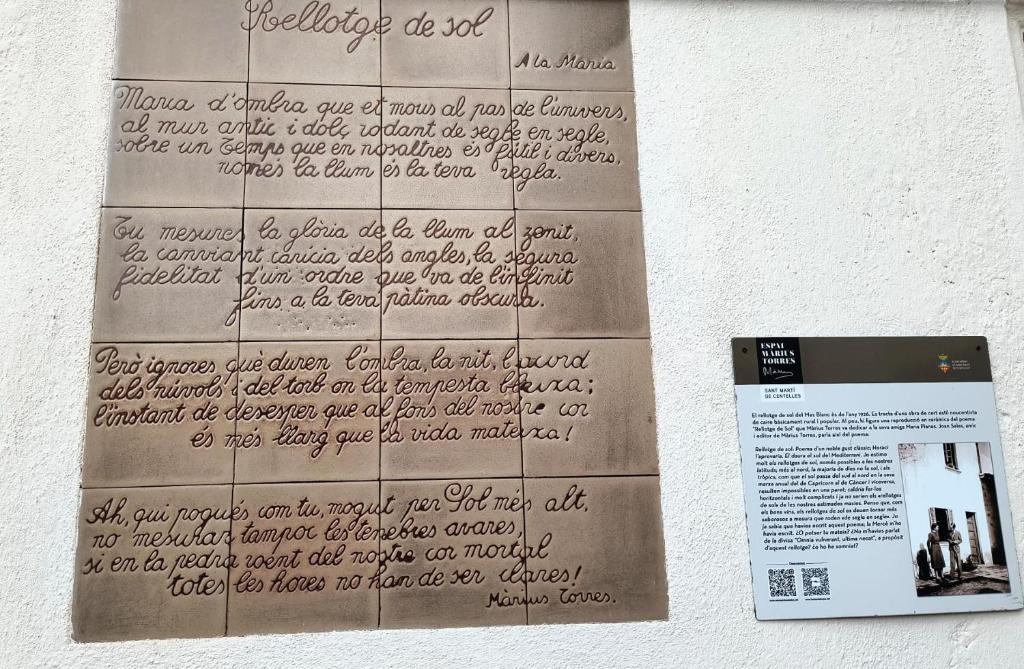 Rellotge de sol
A la Maria
Marca d'ombra que et mous al pas de l'univers,
al mur antic i dolç rodant de segle en segle,
sobre un temps que en nosaltres és fútil i divers,
només la llum és la teva regla.
Tu mesures la glòria de la llum al zenit,
la canviant carícia dels angles, la segura
fidelitat d'un ordre que va de l'infinit
fins a la teva pàtina obscura.
Però ignores què duren l'ombra, la nit,
dels núvols i del torb on la tempesta bleixa;
l'instant de desesper que al fons del nostre cor
és més llarg que la vida mateixa!
Ah, qui pogués com tu, mogut per Sol més alt,
no mesurar tampoc les tenebres avares,
si en la pedra roent del nostre cor mortal
totes les hores no han de ser clares!
Màrius Torres.
ESPAI
MÀRIUS
TORRES
SANT MARTÍ
DE CENTELLES
El rellotge de sol del Mas Blanc és de l'any 1926. Es tracta d'una obra de cert estil noucentista
de caire bàsicament rural i popular. Al peu, hi figura una reproducció en ceràmica del poema
"Rellotge de Sol" que Màrius Torres va dedicar a la seva amiga Maria Planas. Joan Sales, amic
i editor de Màrius Torres, parla així del poema:
Rellotge de sol: Poema d'un noble gust clàssic; Horaci
l'aprovaria. El daura el sol del Mediterrani. Jo estimo
molt els rellotges de sol, només possibles a les nostres
latituds; més al nord, la majoria de dies no fa sol, i als
tròpics, com que el sol passa del sud al nord en la seva
marxa anual del de Capricorn al de Càncer i viceversa,
resulten impossibles en una paret; caldria fer-los
horitzontals i molt complicats i ja no serien els «rellotges
de sol» de les nostres estimades masies. Penso que, com
els bons vins, els rellotges de sol es deuen tornar més
saborosos a mesura que roden «de segle en segle». Jo
ja sabia que havies escrit aquest poema; la Mercè m'ho
havia escrit. ¿O potser tu mateix? ¿No m'havies parlat
de la divisa "Omnia vulnerant, ultima necat", a propòsit
d'aquest rellotge? ¿o ho he somniat?